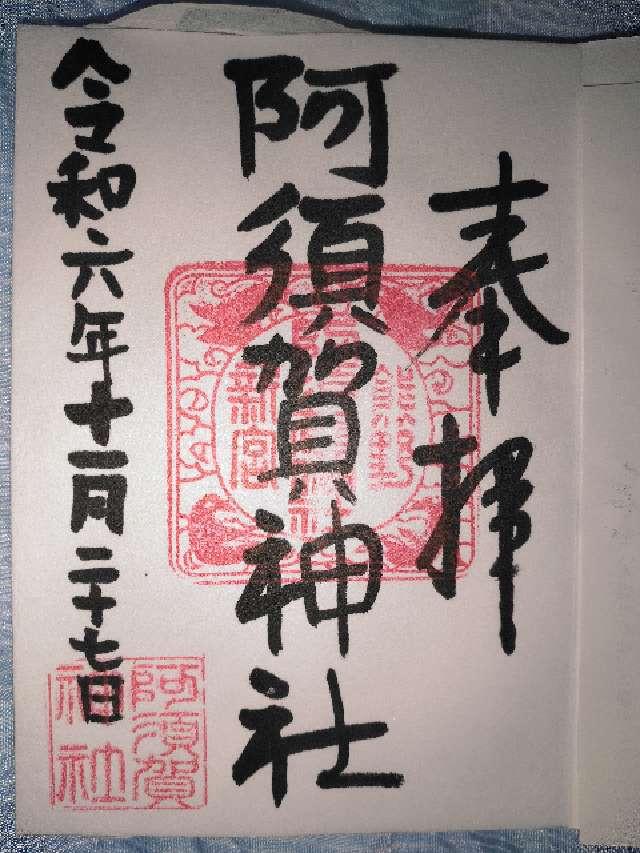 奉拝
阿須賀神社
令和六年十一月二十七日
熊野
新宮
阿須賀
神社